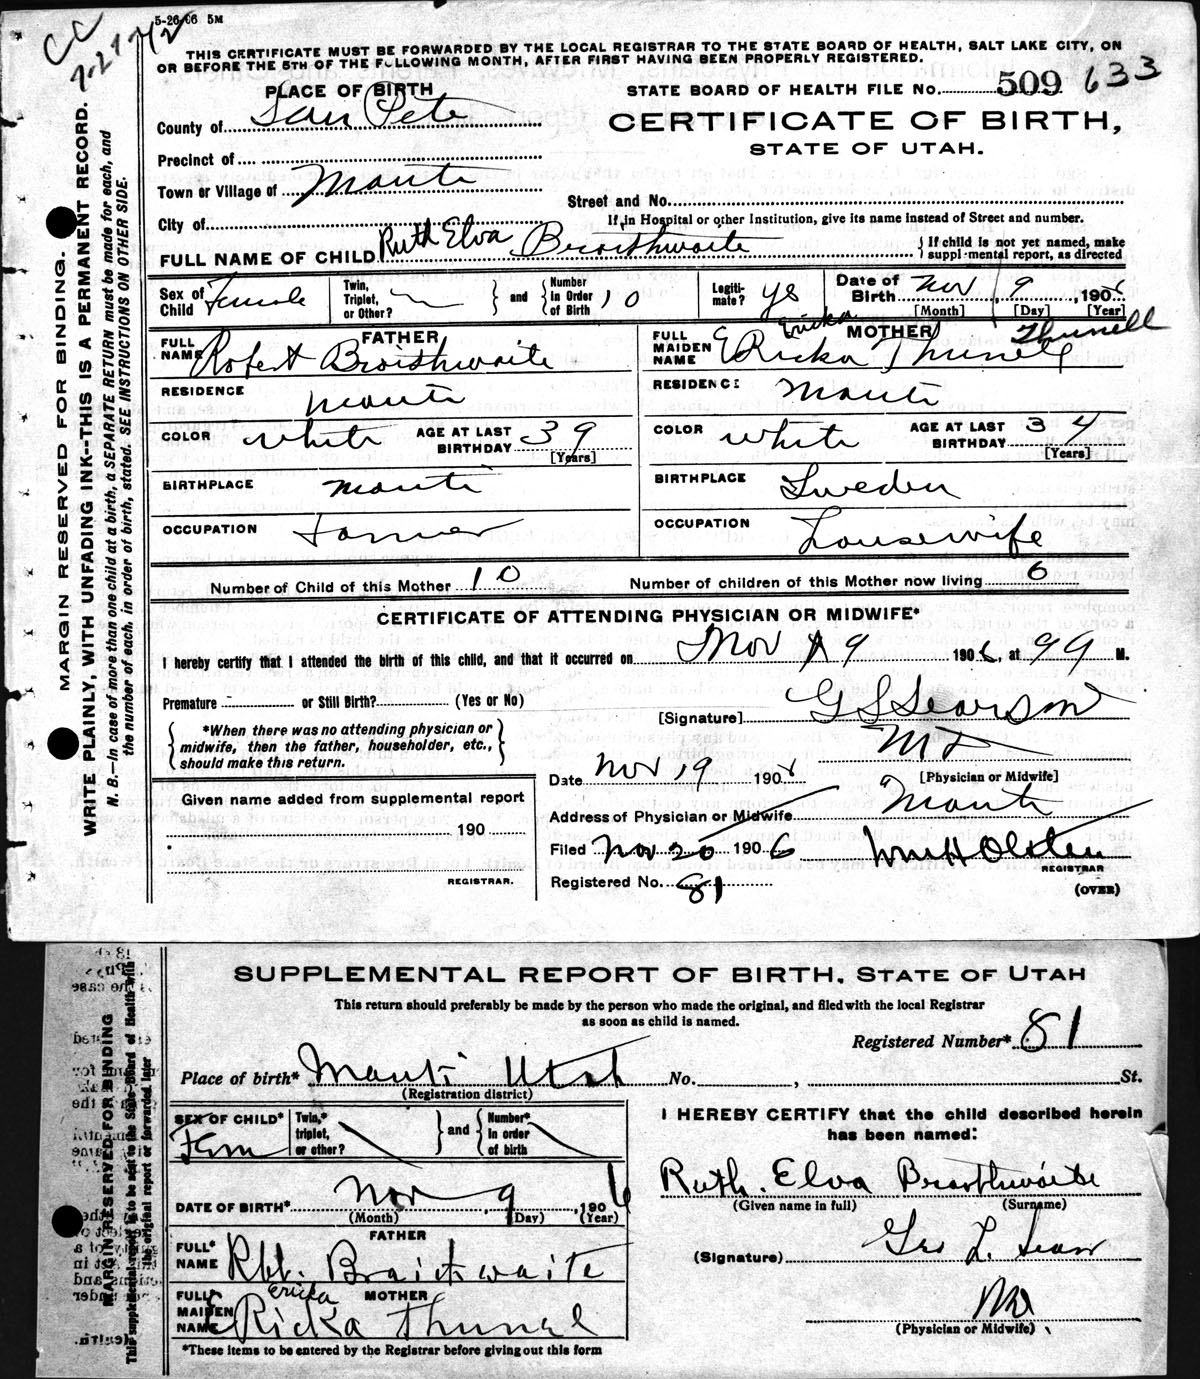 5-26-06 5M
CC
THIS CERTIFICATE MUST BE FORWARDED BY THE LOCAL REGISTRAR TO THE STATE BOARD OF HEALTH, SALT LAKE CITY, ON
OR BEFORE THE 5TH OF THE FOLLOWING MONTH, AFTER FIRST HAVING BEEN PROPERLY REGISTERED.
PLACE OF BIRTH
STATE BOARD OF HEALTH FILE No. 509 633
County of San Pete
CERTIFICATE OF BIRTH,
STATE OF UTAH.
Precinct of
Town or Village of Manti
Street and No.
City of
If in Hospital or other Institution, give its name instead of Street and number.
FULL NAME OF CHILD Ruth Elva Braithwaite
If child is not yet named, make
supplemental report, as directed
Sex of Child Female
Twin, Triplet, or Other?
and
Number in Order of Birth 10
Legitimate? yes
Date of Birth Nov 9, 190
[Month] [Day] [Year]
FATHER
FULL NAME Robert Braithwaite
MOTHER
FULL MAIDEN NAME ERicka Thunell
Ericka Thunell
RESIDENCE Manti
RESIDENCE Manti
COLOR white AGE AT LAST BIRTHDAY 39 [Years]
COLOR white AGE AT LAST BIRTHDAY 34 [Years]
BIRTHPLACE Manti
BIRTHPLACE Sweden
OCCUPATION Farmer
OCCUPATION Housewife
Number of Child of this Mother 10 Number of children of this Mother now living 6
CERTIFICATE OF ATTENDING PHYSICIAN OR MIDWIFE*
I hereby certify that I attended the birth of this child, and that it occurred on Nov 9 1906, at M.
Premature or Still Birth? (Yes or No)
[Signature]
*When there was no attending physician or
midwife, then the father, householder, etc.,
should make this return.
MD
[Physician or Midwife]
Date Nov 19 190
Given name added from supplemental report
190
REGISTRAR.
Address of Physician or Midwife Manti
Filed Nov 20 1906
REGISTRAR
Registered No. 81
(OVER)
MARGIN RESERVED FOR BINDING.
WRITE PLAINLY, WITH UNFADING INK--THIS IS A PERMANENT RECORD.
N. B.—In case of more than one child at a birth, a SEPARATE RETURN must be made for each, and
the number of each, in order of birth, stated. SEE INSTRUCTIONS ON OTHER SIDE.
SUPPLEMENTAL REPORT OF BIRTH, STATE OF UTAH
This return should preferably be made by the person who made the original, and filed with the local Registrar
as soon as child is named.
Registered Number* 81
Place of birth* Manti Utah No. , St.
(Registration district)
SEX OF CHILD* Fem
Twin,* triplet, or other?
and
Number* in order of birth
I HEREBY CERTIFY that the child described herein
has been named:
Ruth. Elva Braithwaite
(Given name in full) (Surname)
DATE OF BIRTH* Nov 9, 1906
(Month) (Day) (Year)
FATHER
FULL* NAME Rbt. Braithwaite
(Signature)
MOTHER
FULL* MAIDEN NAME ERicka
Ericka
MD
(Physician or Midwife)
*These items to be entered by the Registrar before giving out this form
MARGIN RESERVED FOR BINDING
This supplemental report is to be sent to the State Board of Health with
the original report or forwarded later